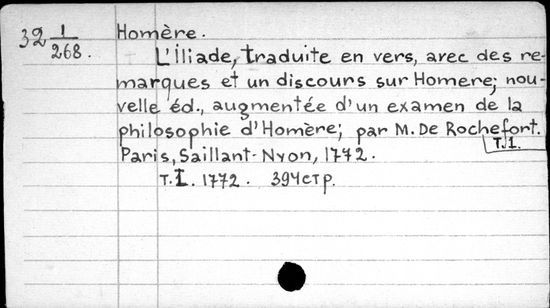 32 1/268. Homère.
L'Iliade, traduite en vers, avec des re-
marques et un discours sur Homere; nou-
velle éd., augmentée d'un examen de la
philosophie d'Homère; par M. De Rochefort.
T.I.
Paris, Saillant-Nyon, 1772.
T.I. 1772. 394стр.